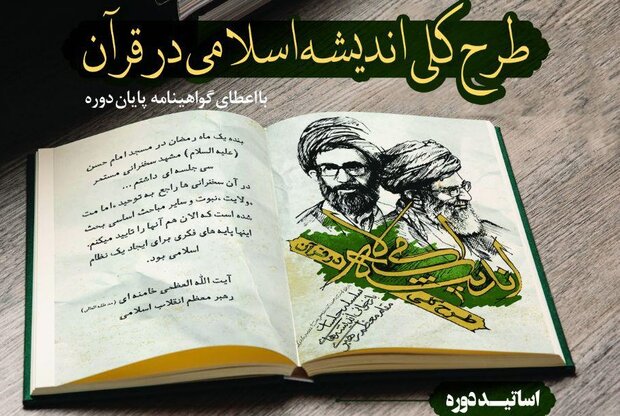 طرح کلی اندیشه اسلامی در قرآن
با اعطای گواهینامه پایان دوره
بنده یک ماه رمضان در مسجد امام حسن
(علیه السلام) مشهد سخنرانی مستمر
سی جلسه ای داشتم ...
در آن سخنرانی ها راجع به توحید، امامت
،ولایت ،نبوت و سایر مباحث اساسی بحث
شده است که الان هم آنها را تایید میکنم.
اینها پایه های فکری برای ایجاد یک نظام
اسلامی بود.
آیت الله العظمی خامنه ای (مد ظله العالی)
رهبر معظم انقلاب اسلامی
طرح کلی
اندیشه اسلامی
در قرآن
اساتید دوره